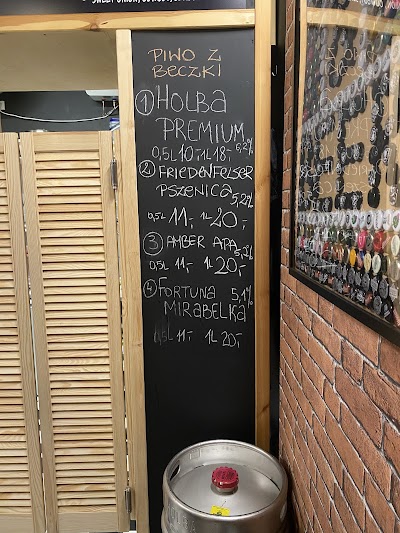 PIWO Z
BECZKI
1 HOLBA
PREMIUM 5,2%
0,5L 10,- 1L 18,-
2 FRIEDENFELSER
PSZENICA 5,2%
0,5L 11,- 1L 20,-
3 AMBER APA 5,2%
0,5L 11,- 1L 20,-
4 FORTUNA 5,1%
MIRABELKA
0,5L 11,- 1L 20,-